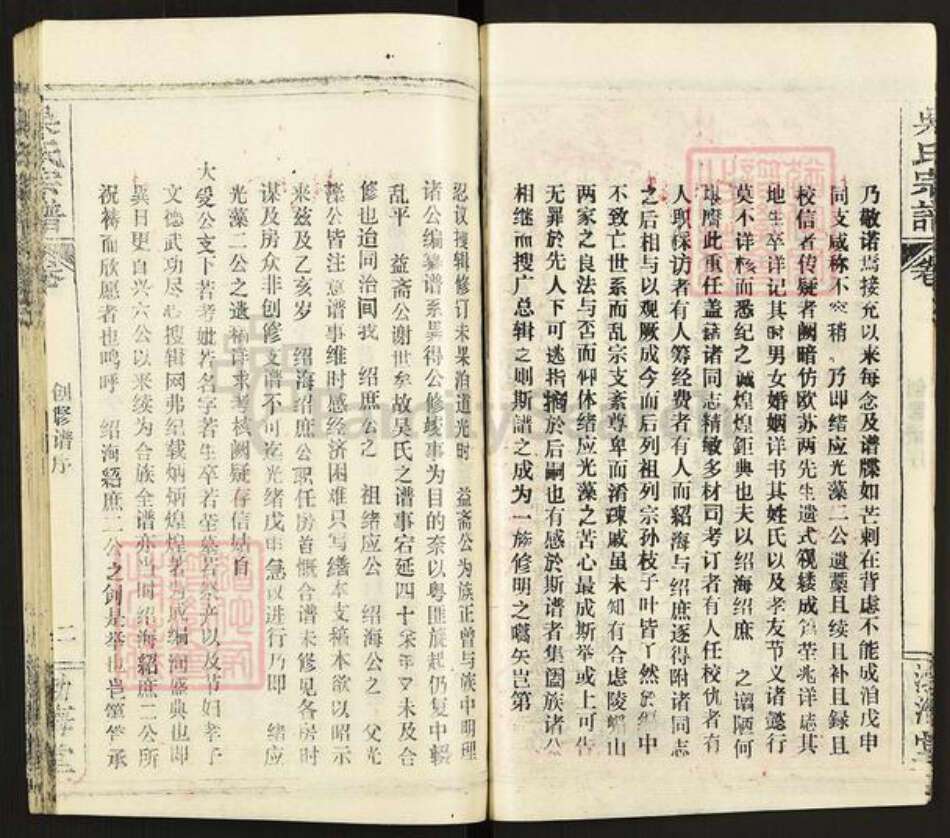 乃敬诺焉接充以来每念及谱牒如芒刺在背虑不能成洎戊申
同支咸称不容稍 乃即绪应光藻二公遗藁且续且补且録且
校信者传疑者阙暗仿欧苏两先生遗式覙缕成 茔兆详誌其
地生卒详记其时男女婚姻详书其姓氏以及孝友节义诸懿行
莫不详核而悉纪之诚煌煌鉅典也夫以绍海绍庶 之谫陋何
堪膺此重任盖藉诸同志精敏多材司考订者有人任校仇者有
人职探访者有人筹经费者有人而紹海与绍庶逐得附诸同志
之后相与以观厥成今而后列祖列宗孙枝子叶皆丫然於 中
不致亡世系而乱宗支紊尊卑而淆疎戚虽未知有合虑陵 山
两家之良法与否而仰体绪应光藻之苦心最成斯举或上可告
无罪於先人下可逃指摘於后嗣也有感於斯谱者集囼族诸公
相继而搜广总辑之则斯譜之成为一族修明之嚆矢岂第
忍议搜辑修订未果洎道光时 益斋公为族正曾与族中明理
诸公编纂谱系 得公修缘事为目的奈以粤匪族起仍复中輟
乱平 益斋公谢世矣故吴氏之谱事宕延四十余年又未及合
修也迨同治间我 绍庶公之 祖绪应公 绍海公之 父光
藻公皆注意谱事维时感经济困难只写缮本支稿本欲以昭示
来兹及乙亥岁 绍海绍庶公职任房首慨合谱未修见各房时
谋及房众非创修支谱不可迄光绪戊申急议进行乃即 绪应
光藻二公之遗稿详求考核阙疑存信姑自
大受公支下若考妣若名字若生卒若茔墓若祭产以及节妇孝子
文德武功尽心搜辑网弗纪载炳炳煌煌著为成编洵盛典也即
異日更自兴六公以来续为合族全谱亦当时绍海紹庶二公所
祝祷而欣愿者也呜呼 绍海紹庶二公之创是举也岂第筦承
吴氏宗谱
卷
创修谱序
二
吴氏宗譜
卷